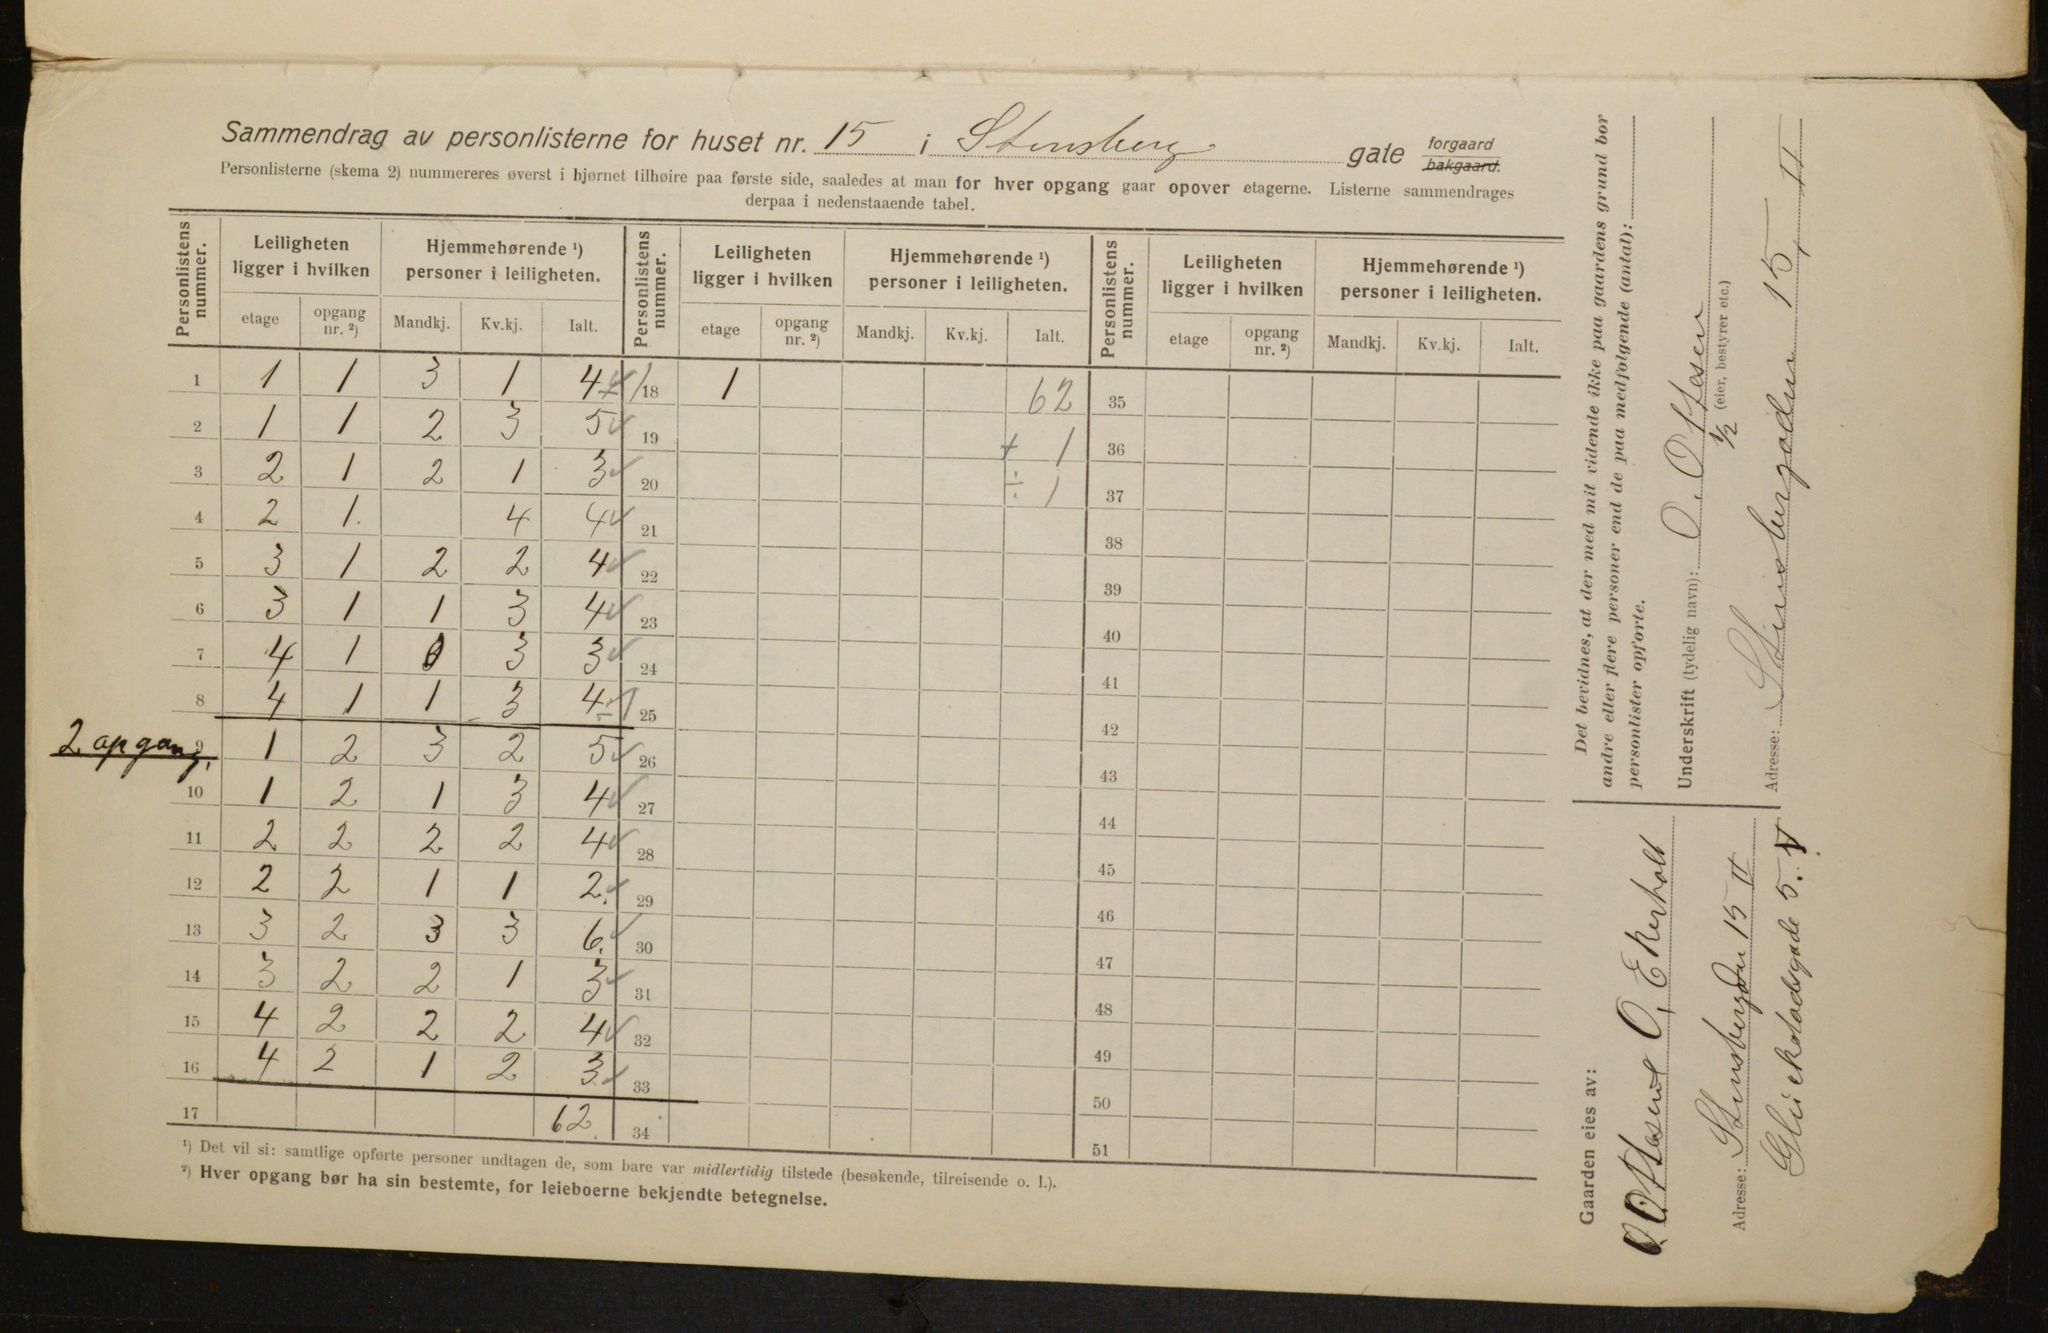 Sammendrag av personlisterne for huset nr. 15 i Stensberg gate forgaard bakgaard.
Personlisterne (skema 2) nummereres øverst i hjørnet tilhøire paa første side, saaledes at man for hver opgang gaar opover etagerne. Listerne sammendrages
derpaa i nedenstaaende tabel.
Personlistens nummer. Leiligheten ligger i hvilken Hjemmehørende ¹) personer i leiligheten. Personlistens nummer. Leiligheten ligger i hvilken Hjemmehørende ¹) personer i leiligheten. Personlistens nummer. Leiligheten ligger i hvilken Hjemmehørende ¹) personer i leiligheten.
etage opgang nr. ²) Mandkj. Kv.kj. Ialt. etage opgang nr. ²) Mandkj. Kv.kj. Ialt. etage opgang nr. ²) Mandkj. Kv.kj. Ialt.
1 1 1 3 1 4 + 1 18 1 62 35
2 1 1 2 3 5 19 + 1 36
3 2 1 2 1 3 20 ÷ 1 37
4 2 1. 4 4 21 38
5 3 1 2 2 4 22 39
6 3 1 1 3 4 23 40
7 4 1 0 3 3 24 41
8 4 1 1 3 4 ÷ 1 25 42
2 opgang. 9 1 2 3 2 5 26 43
10 1 2 1 3 4 27 44
11 2 2 2 2 4 28 45
12 2 2 1 1 2. 29 46
13 3 2 3 3 6. 30 47
14 3 2 2 1 3 31 48
15 4 2 2 2 4 32 49
16 4 2 1 2 3 33 50
17 62. 34 51
¹) Det vil si: samtlige opførte personer undtagen de, som bare var midlertidig tilstede (besøkende, tilreisende o. l.).
²) Hver opgang bør ha sin bestemte, for leieboerne bekjendte betegnelse.
Det bevidnes, at der med mit vidende ikke paa gaardens grund bor
andre eller flere personer end de paa medfølgende (antal):
personlister opførte.
Underskrift (tydelig navn): O. Ottesen
½ (eier, bestyrer etc.)
Adresse: Stensberggaden 15, II
Gaarden eies av:
O. Ottesen & O, Ekerholt
Adresse: Stensberggaden 15 II
Glückstadsgade 5. V.